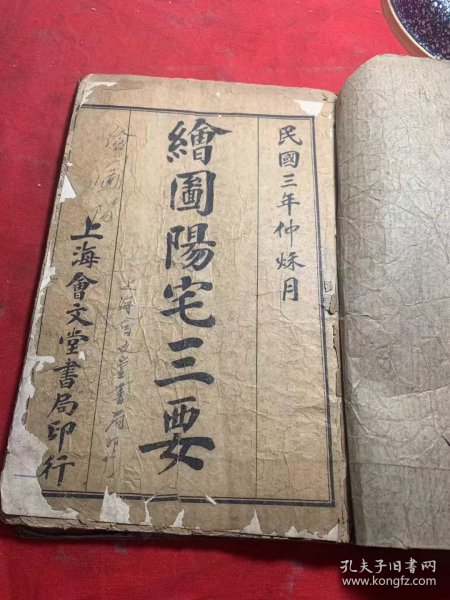 民國三年仲秌月
繪圖陽宅三要
上海會文堂書局印行
繪圖
上海會文堂書局印
孔夫子旧书网
www.kongfz.com